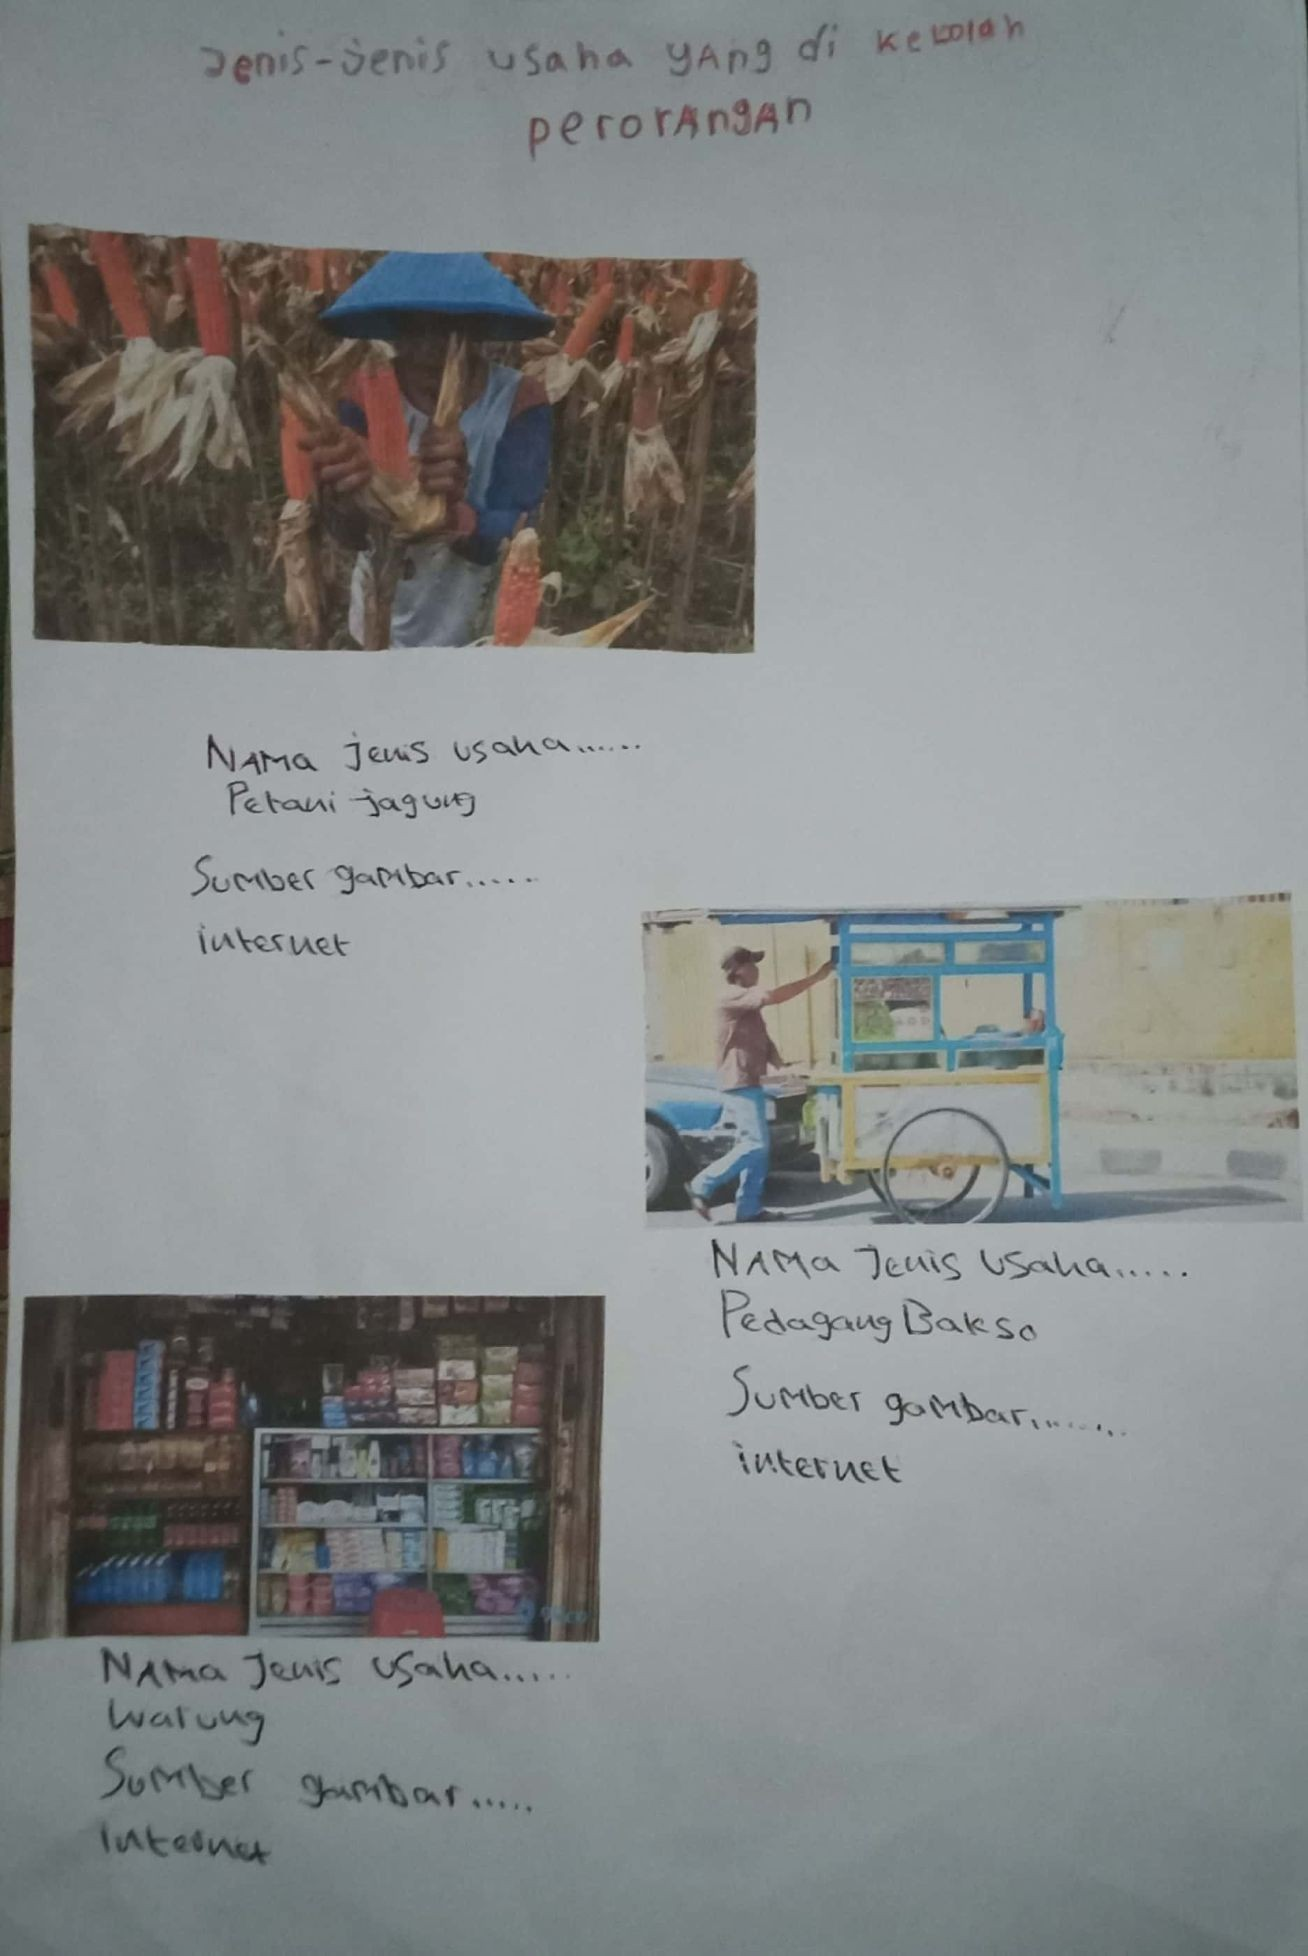 Jenis-Jenis usaha yAng di kelolah
perorAngAn
NAMa jenis usaha......
Petani jagung
Sumber gambar......
internet
NAMa Jenis usaha.....
Pedagang Bakso
Sumber gambar........
internet
NAMa Jenis usaha.....
Warung
Sumber gambar.....
internet